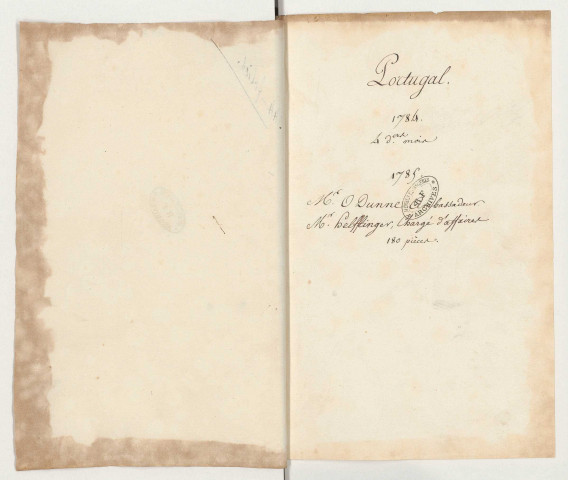 Portugal.
1784.
4 d.ers mois
1785
M.r O Dunne, Ambassadeur
M.r helfflinger, Chargé d'affaires
180 pièces.
ARCHIVES